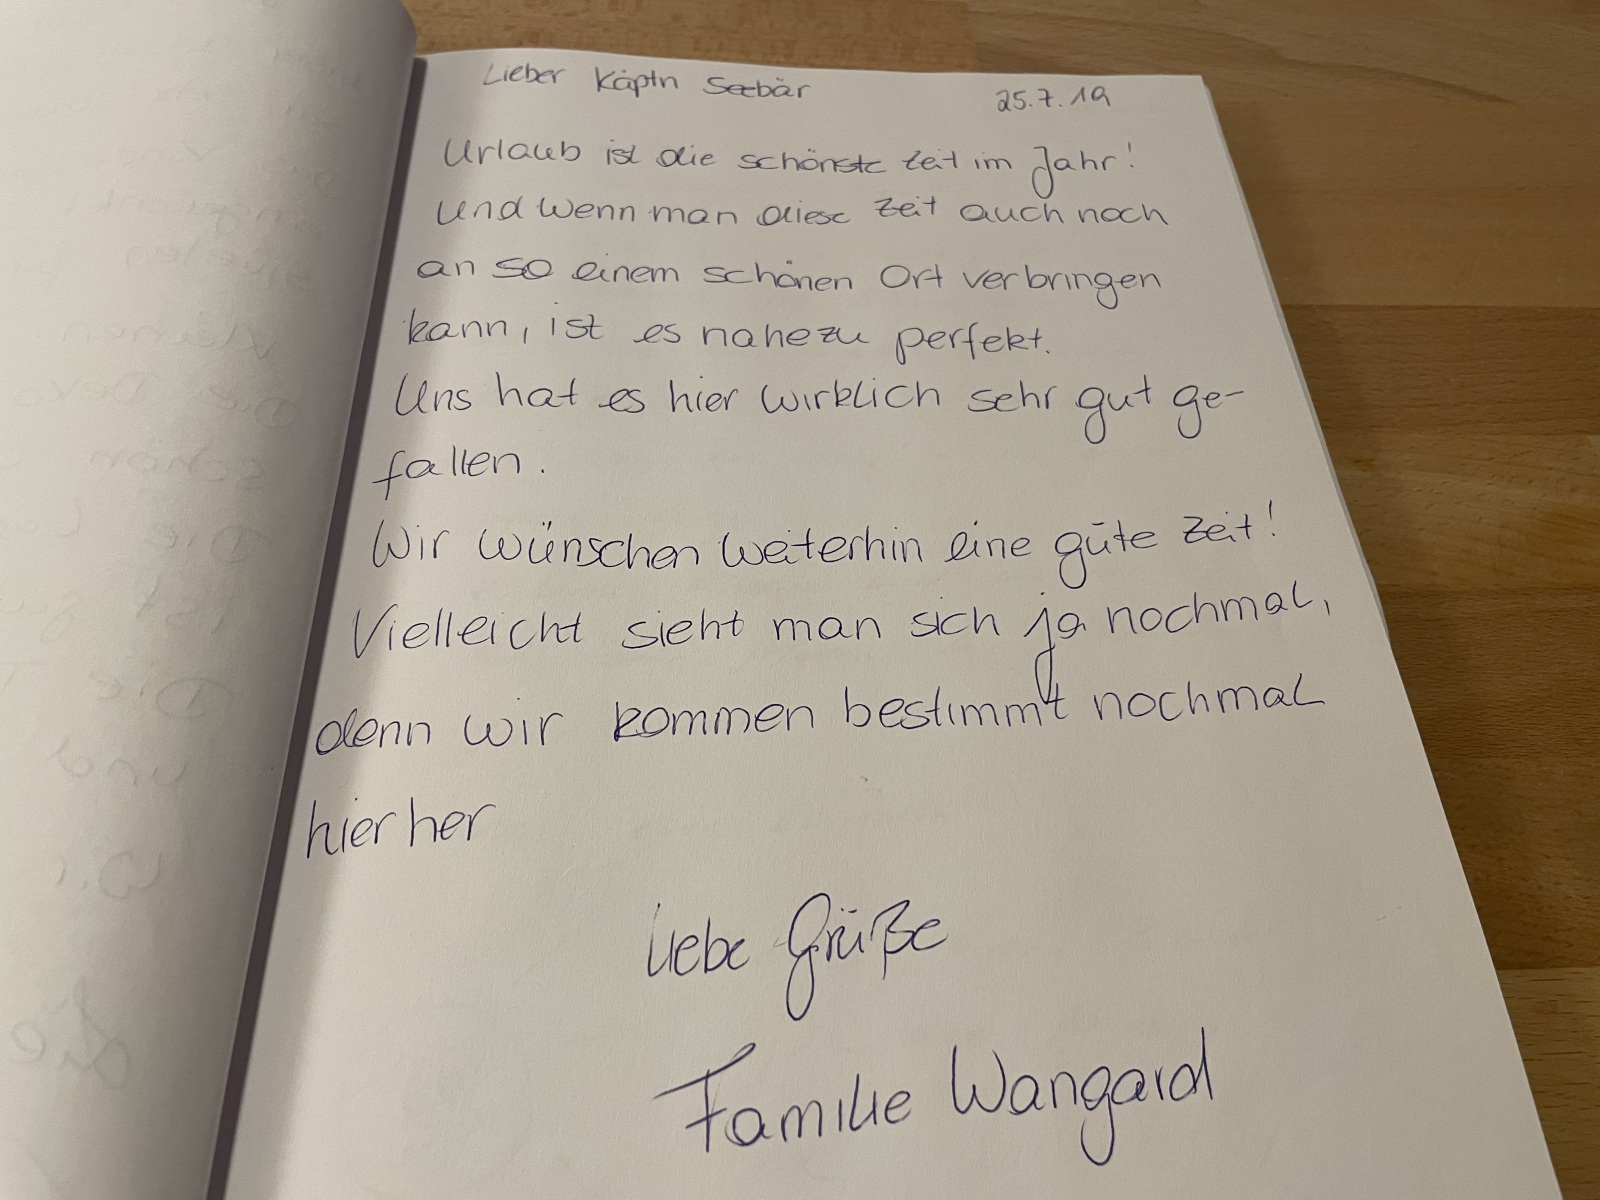 Lieber Käptn Seebär
25.7.19
Urlaub ist die schönste Zeit im Jahr!
Und wenn man diese Zeit auch noch
an so einem schönen Ort verbringen
kann, ist es nahezu perfekt.
Uns hat es hier wirklich sehr gut ge-
fallen.
Wir wünschen weiterhin eine gute Zeit!
Vielleicht sieht man sich ja nochmal,
denn wir kommen bestimmt nochmal
hierher
Liebe Grüße
Familie Wangard